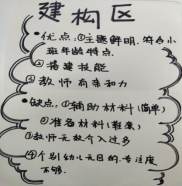 建构区
•优点:①主题鲜明,符合小
班年龄特点.
②搭建技能
③教师有亲和力
•缺点:①辅助材料(简单)
②准备材料(鞋盒)
③教师无故介入过多
④个别幼儿无目的.专注度
不够.